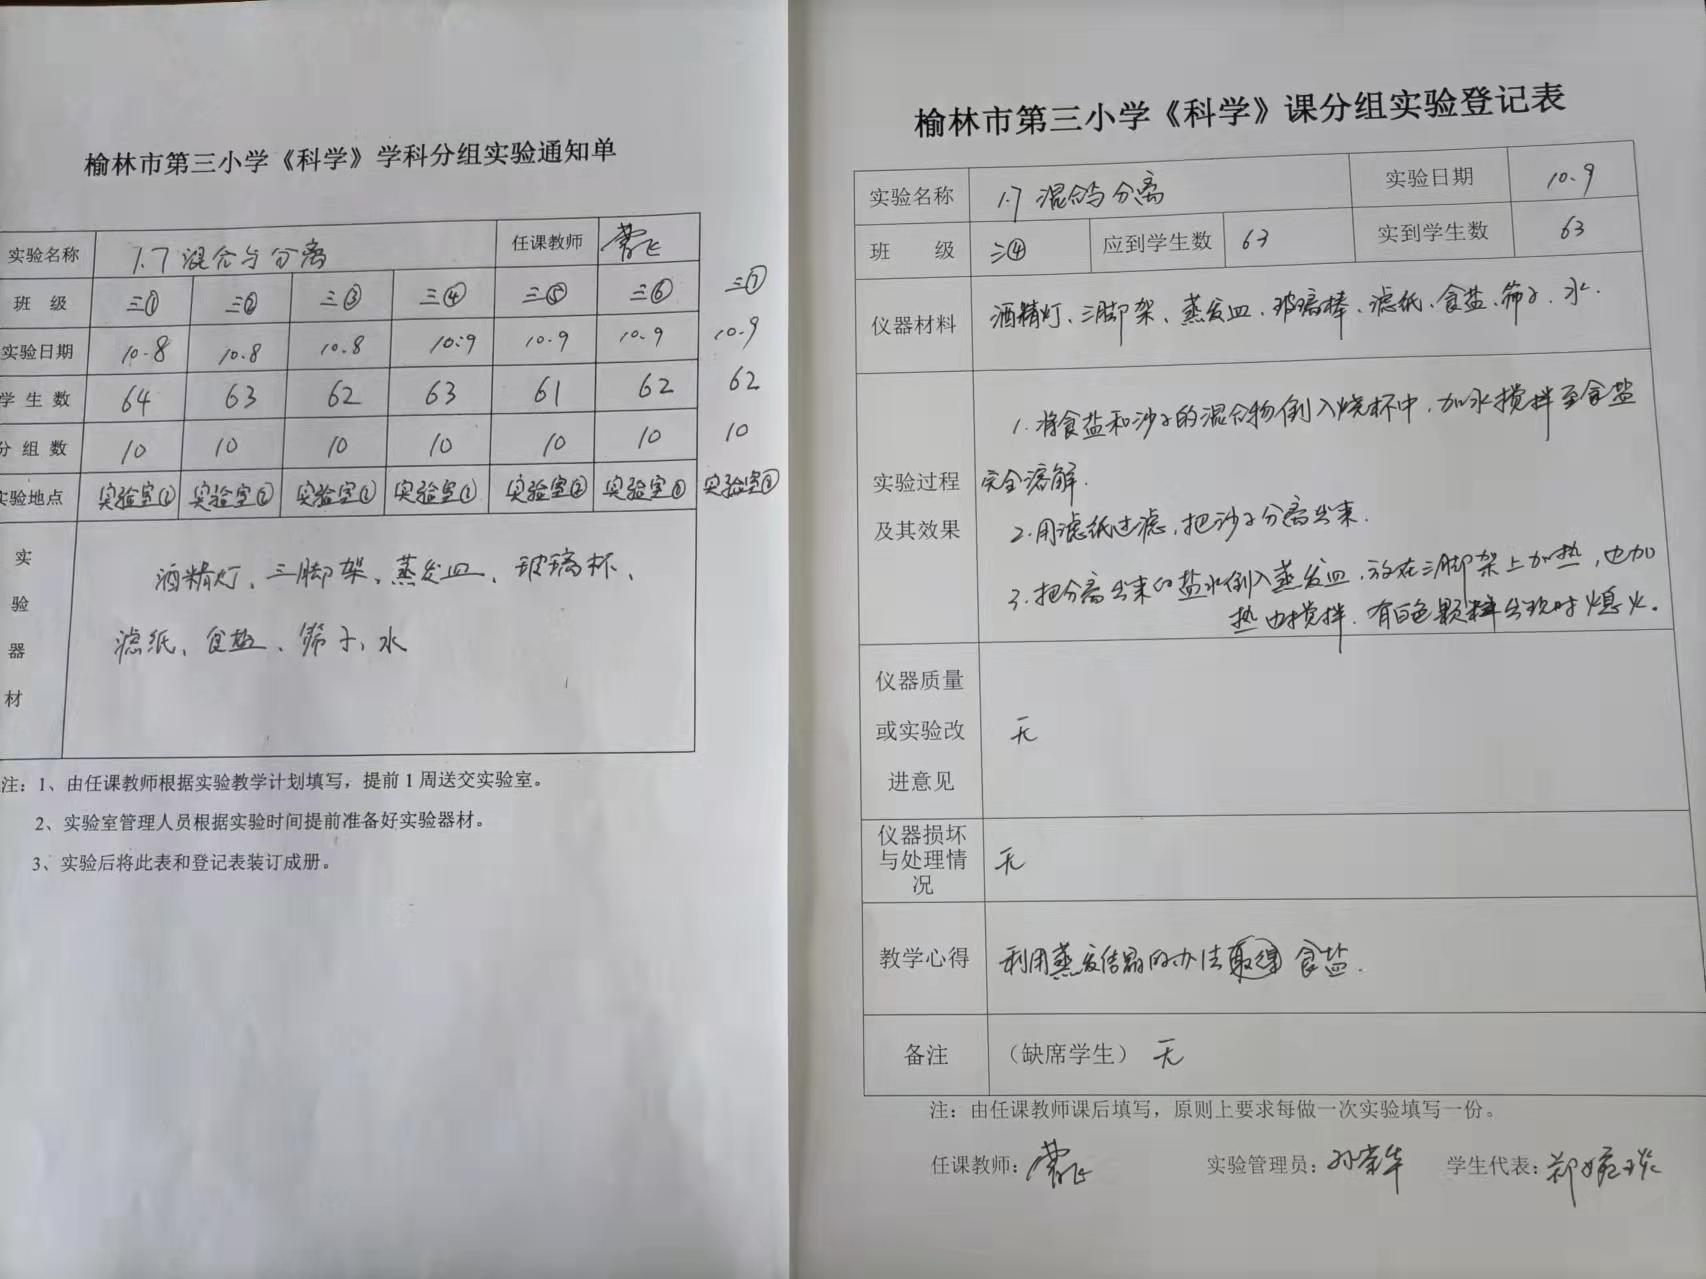 榆林市第三小学《科学》学科分组实验通知单
实验名称 1.7 混合与分离 任课教师
班 级 三① 三② 三③ 三④ 三⑤ 三⑥ 三⑦
实验日期 10.8 10.8 10.8 10.9 10.9 10.9 10.9
学 生 数 64 63 62 63 61 62 62
分 组 数 10 10 10 10 10 10 10
实验地点 实验室① 实验室② 实验室 实验室① 实验室② 实验室 实验室
实
验
器
材
酒精灯、三脚架、蒸发皿、玻璃杯、
滤纸、食盐、筛子、水
注：1、由任课教师根据实验教学计划填写，提前1周送交实验室。
2、实验室管理人员根据实验时间提前准备好实验器材。
3、实验后将此表和登记表装订成册。
榆林市第三小学《科学》课分组实验登记表
实验名称 1.7 混合与分离 实验日期 10.9
班 级 三④ 应到学生数 63 实到学生数 63
仪器材料 酒精灯、三脚架、蒸发皿、玻璃棒、滤纸、食盐、筛子、水.
实验过程
及其效果
1.将食盐和沙子的混合物倒入烧杯中,加水搅拌至食盐
完全溶解.
2.用滤纸过滤,把沙子分离出来.
3.把分离出来的盐水倒入蒸发皿,放在三脚架上加热,边加
热边搅拌.有白色颗粒出现时熄火.
仪器质量
或实验改
进意见
无
仪器损坏
与处理情
况
无
教学心得 利用蒸发结晶的办法取得食盐.
备注 （缺席学生） 无
注：由任课教师课后填写，原则上要求每做一次实验填写一份。
任课教师： 实验管理员： 学生代表：